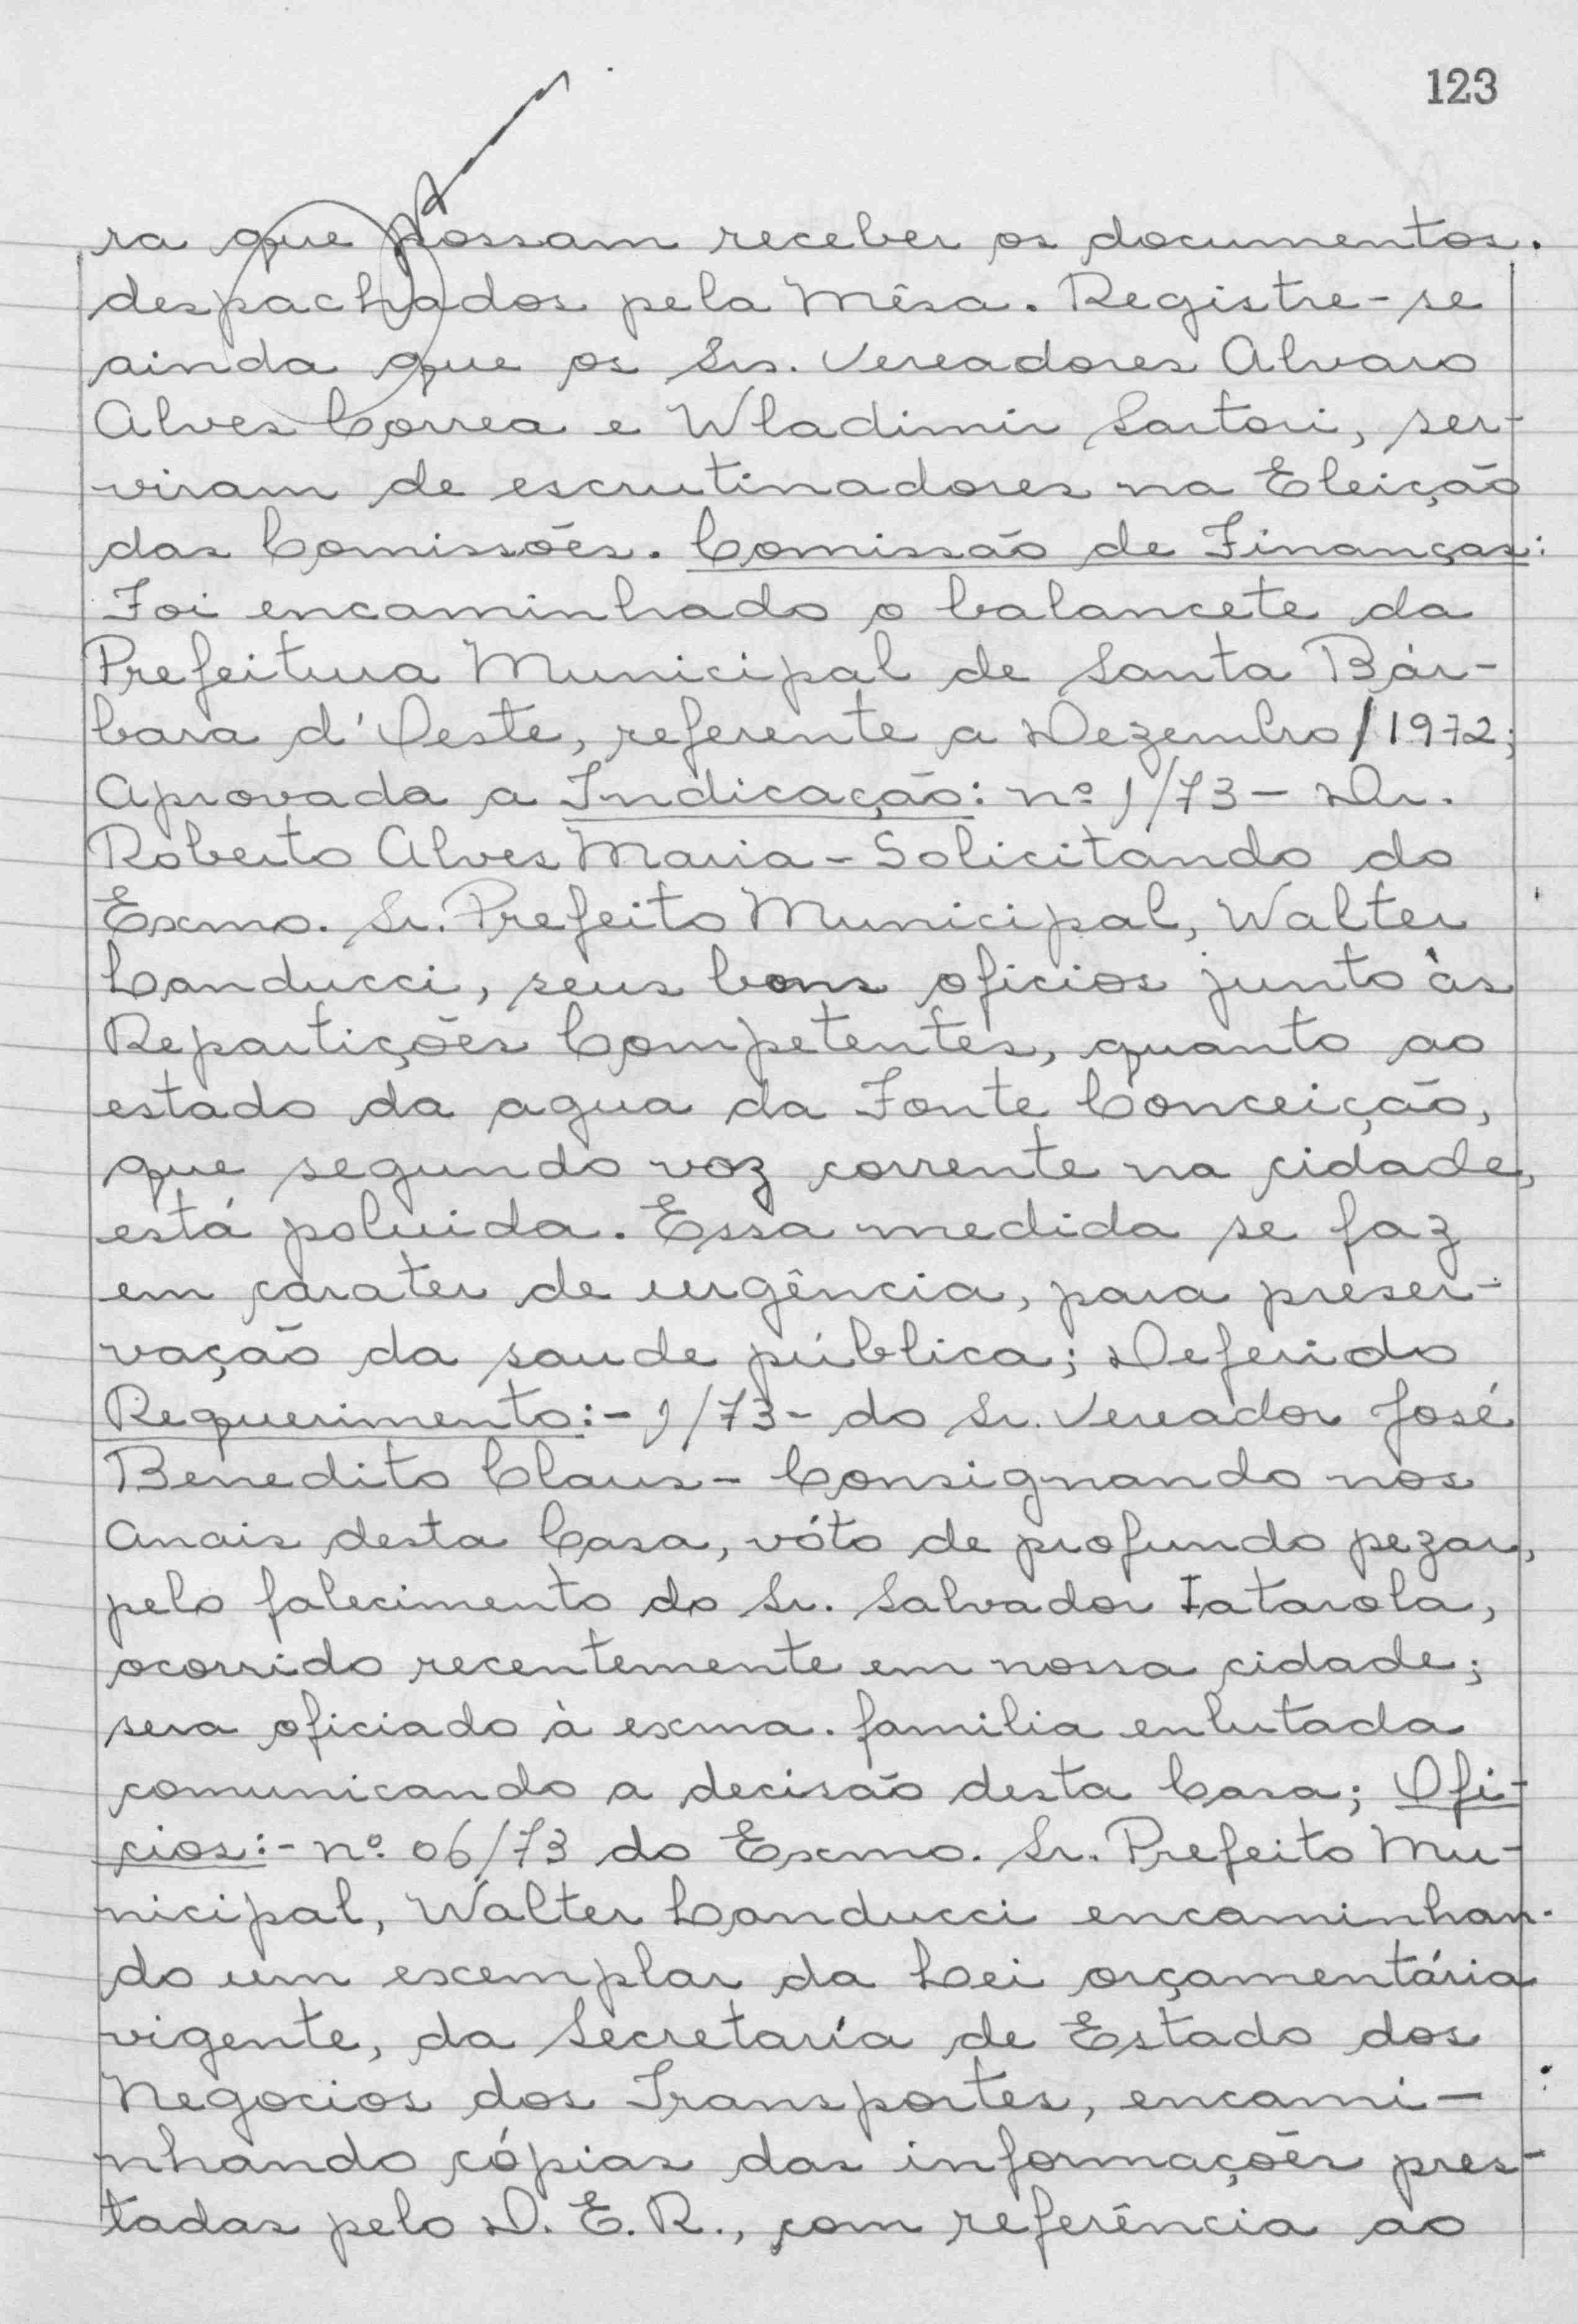 123
ra que possam receber os documentos.
despachados pela Mêsa. Registre-se
ainda que os Srs. Vereadores Alvaro
Alves Correa e Wladimir Sartori, ser-
viram de escrutinadores na Eleição
das Comissões. Comissão de Finanças:
Foi encaminhado o balancete da
Prefeitura Municipal de Santa Bár-
bara d'Oeste, referente a Dezembro/1972;
Aprovada a Indicação: nº 1/73 - Dr.
Roberto Alves Maria - Solicitando do
Exmo. Sr. Prefeito Municipal, Walter
Landucci, seus bons oficios junto às
Repartições Competentes, quanto ao
estado da agua da Fonte Conceição,
que segundo voz corrente na cidade,
está poluida. Essa medida se faz
em carater de urgência, para preser-
vação da saude pública; Deferido
Requerimento:- 1/73 - do Sr. Vereador José
Benedito Claus - Consignando nos
Anais desta Casa, vóto de profundo pezar,
pelo falecimento do Sr. Salvador Iatarola,
ocorrido recentemente em nossa cidade;
sera oficiado à exma. familia enlutada
comunicando a decisão desta Casa; Ofi-
cios:- nº 06/73 do Exmo. Sr. Prefeito Mu-
nicipal, Walter Landucci encaminhan-
do um exemplar da Lei orçamentária
vigente, da Secretaría de Estado dos
Negocios dos Transportes, encami-
nhando cópias das informações pres-
tadas pelo D.E.R., com referência ao